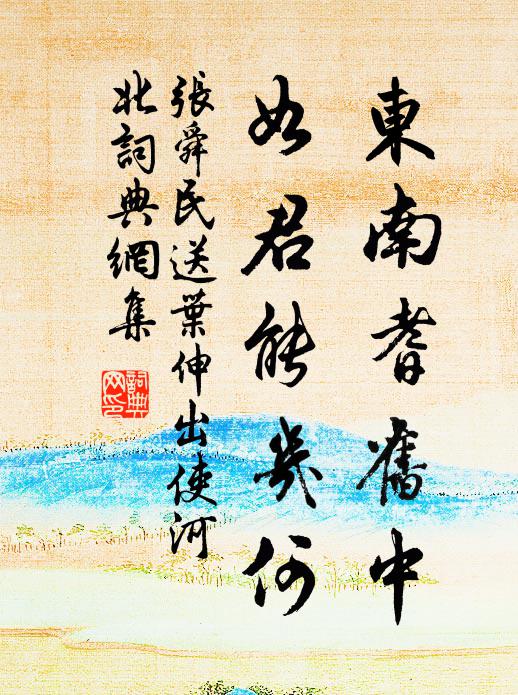 東南耆舊中
如君能幾何
張舜民送葉伸出使河
北詞典網集
詞典
网印